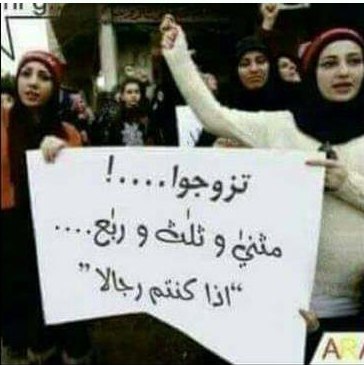 تزوجوا....!
مثنىٰ و ثلٰث و ربٰع....
"اذا كنتم رجالا"
ARA